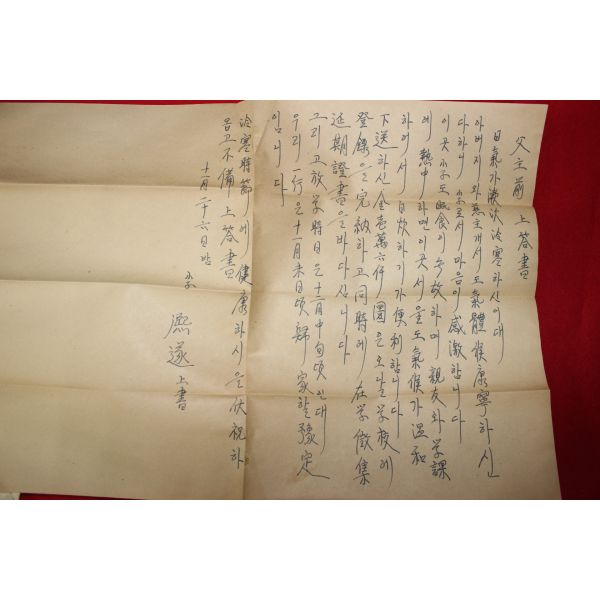 父主前上答書
日氣가漸次冷寒하신이대
아버지와慈主개서도氣體候康寧하신
다하니 子로서마음이感激합니다
이곳子도眠食이무故하며親友와学課
에熱中하면이곳서울도氣候가溫和
하여서自炊하기가便利합니다
下送하신金壱萬六仟圜은오날学校에
登錄을完納하고同時에在学徵集
延期證書을바다십니다
그리고放学時日은十二月中旬頃인대
우리一行은十一月末日頃歸家할豫定
임니다
冷寒時節에健康하시을伏祝하
옵고不備上答書
十一月二十六日밤
子 熙遂上書